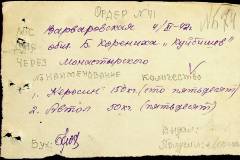 ОРДЕР № 71
МТС Варваровская 4/XI-42г.
общ. Б. Корениха "Куйбишев"
ЧЕРЕЗ Монастырского
НАИМЕНОВАНИЕ Количество
1. Керосин 150 кг. (сто пятьдесят)
2. Автол 50 кг. (пятьдесят)
Бух: